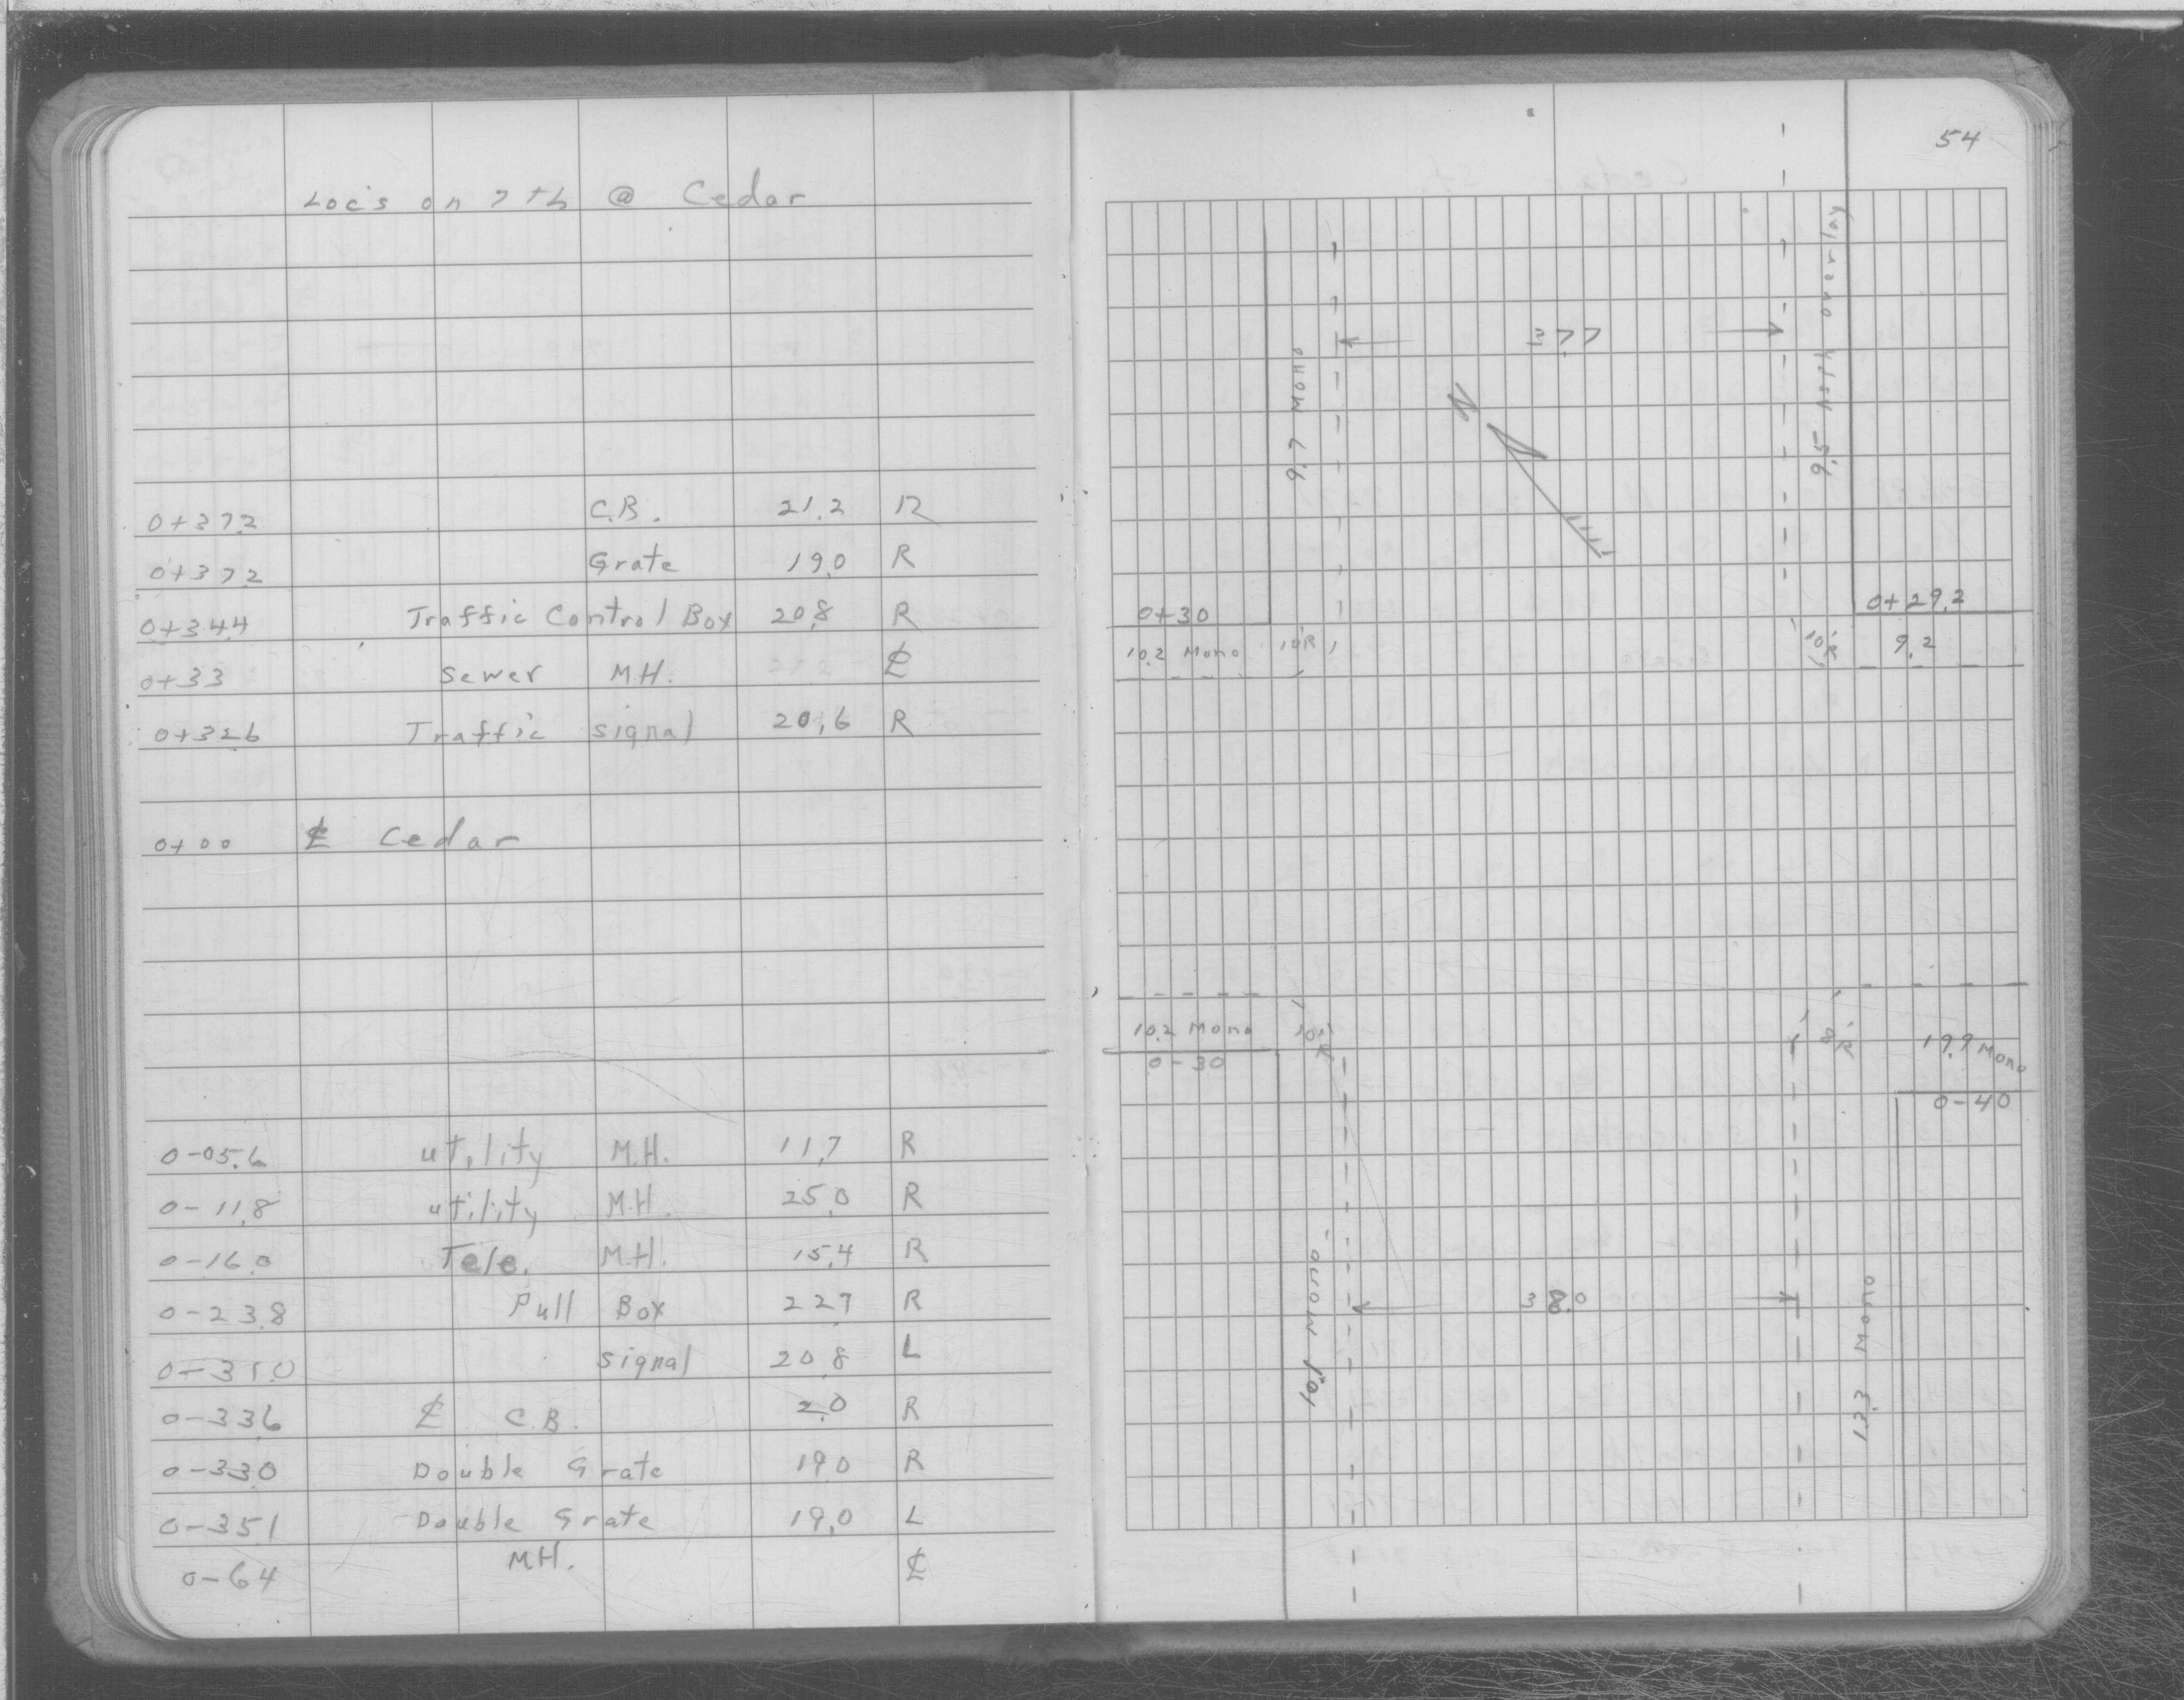 Loc's on 7th @ Cedar
0+37.2 C.B. 21.2 R
0+37.2 Grate 19.0 R
0+34.4 Traffic Control Box 20.8 R
0+33 Sewer M.H. ℄
0+32.6 Traffic signal 20.6 R
0+00 ℄ Cedar
0-05.6 utility M.H. 11.7 R
0-11.8 utility M.H. 25.0 R
0-16.0 Tele. M.H. 15.4 R
0-23.8 Pull Box 22.7 R
0-31.0 signal 20.8 L
0-33.6 ℄ C.B. 2.0 R
0-33.0 Double Grate 19.0 R
0-35.1 Double Grate 19.0 L
0-64 M.H. ℄
54
9.7 Mono
37.7
9.5 Asph overlay
N
0+30
0+29.2
10.2 Mono 10'R
10'R 9.2
10.2 Mono 10'R
8'R 19.9 Mono
0-30
0-40
10.1 Mono
38.0
13.3 Mono